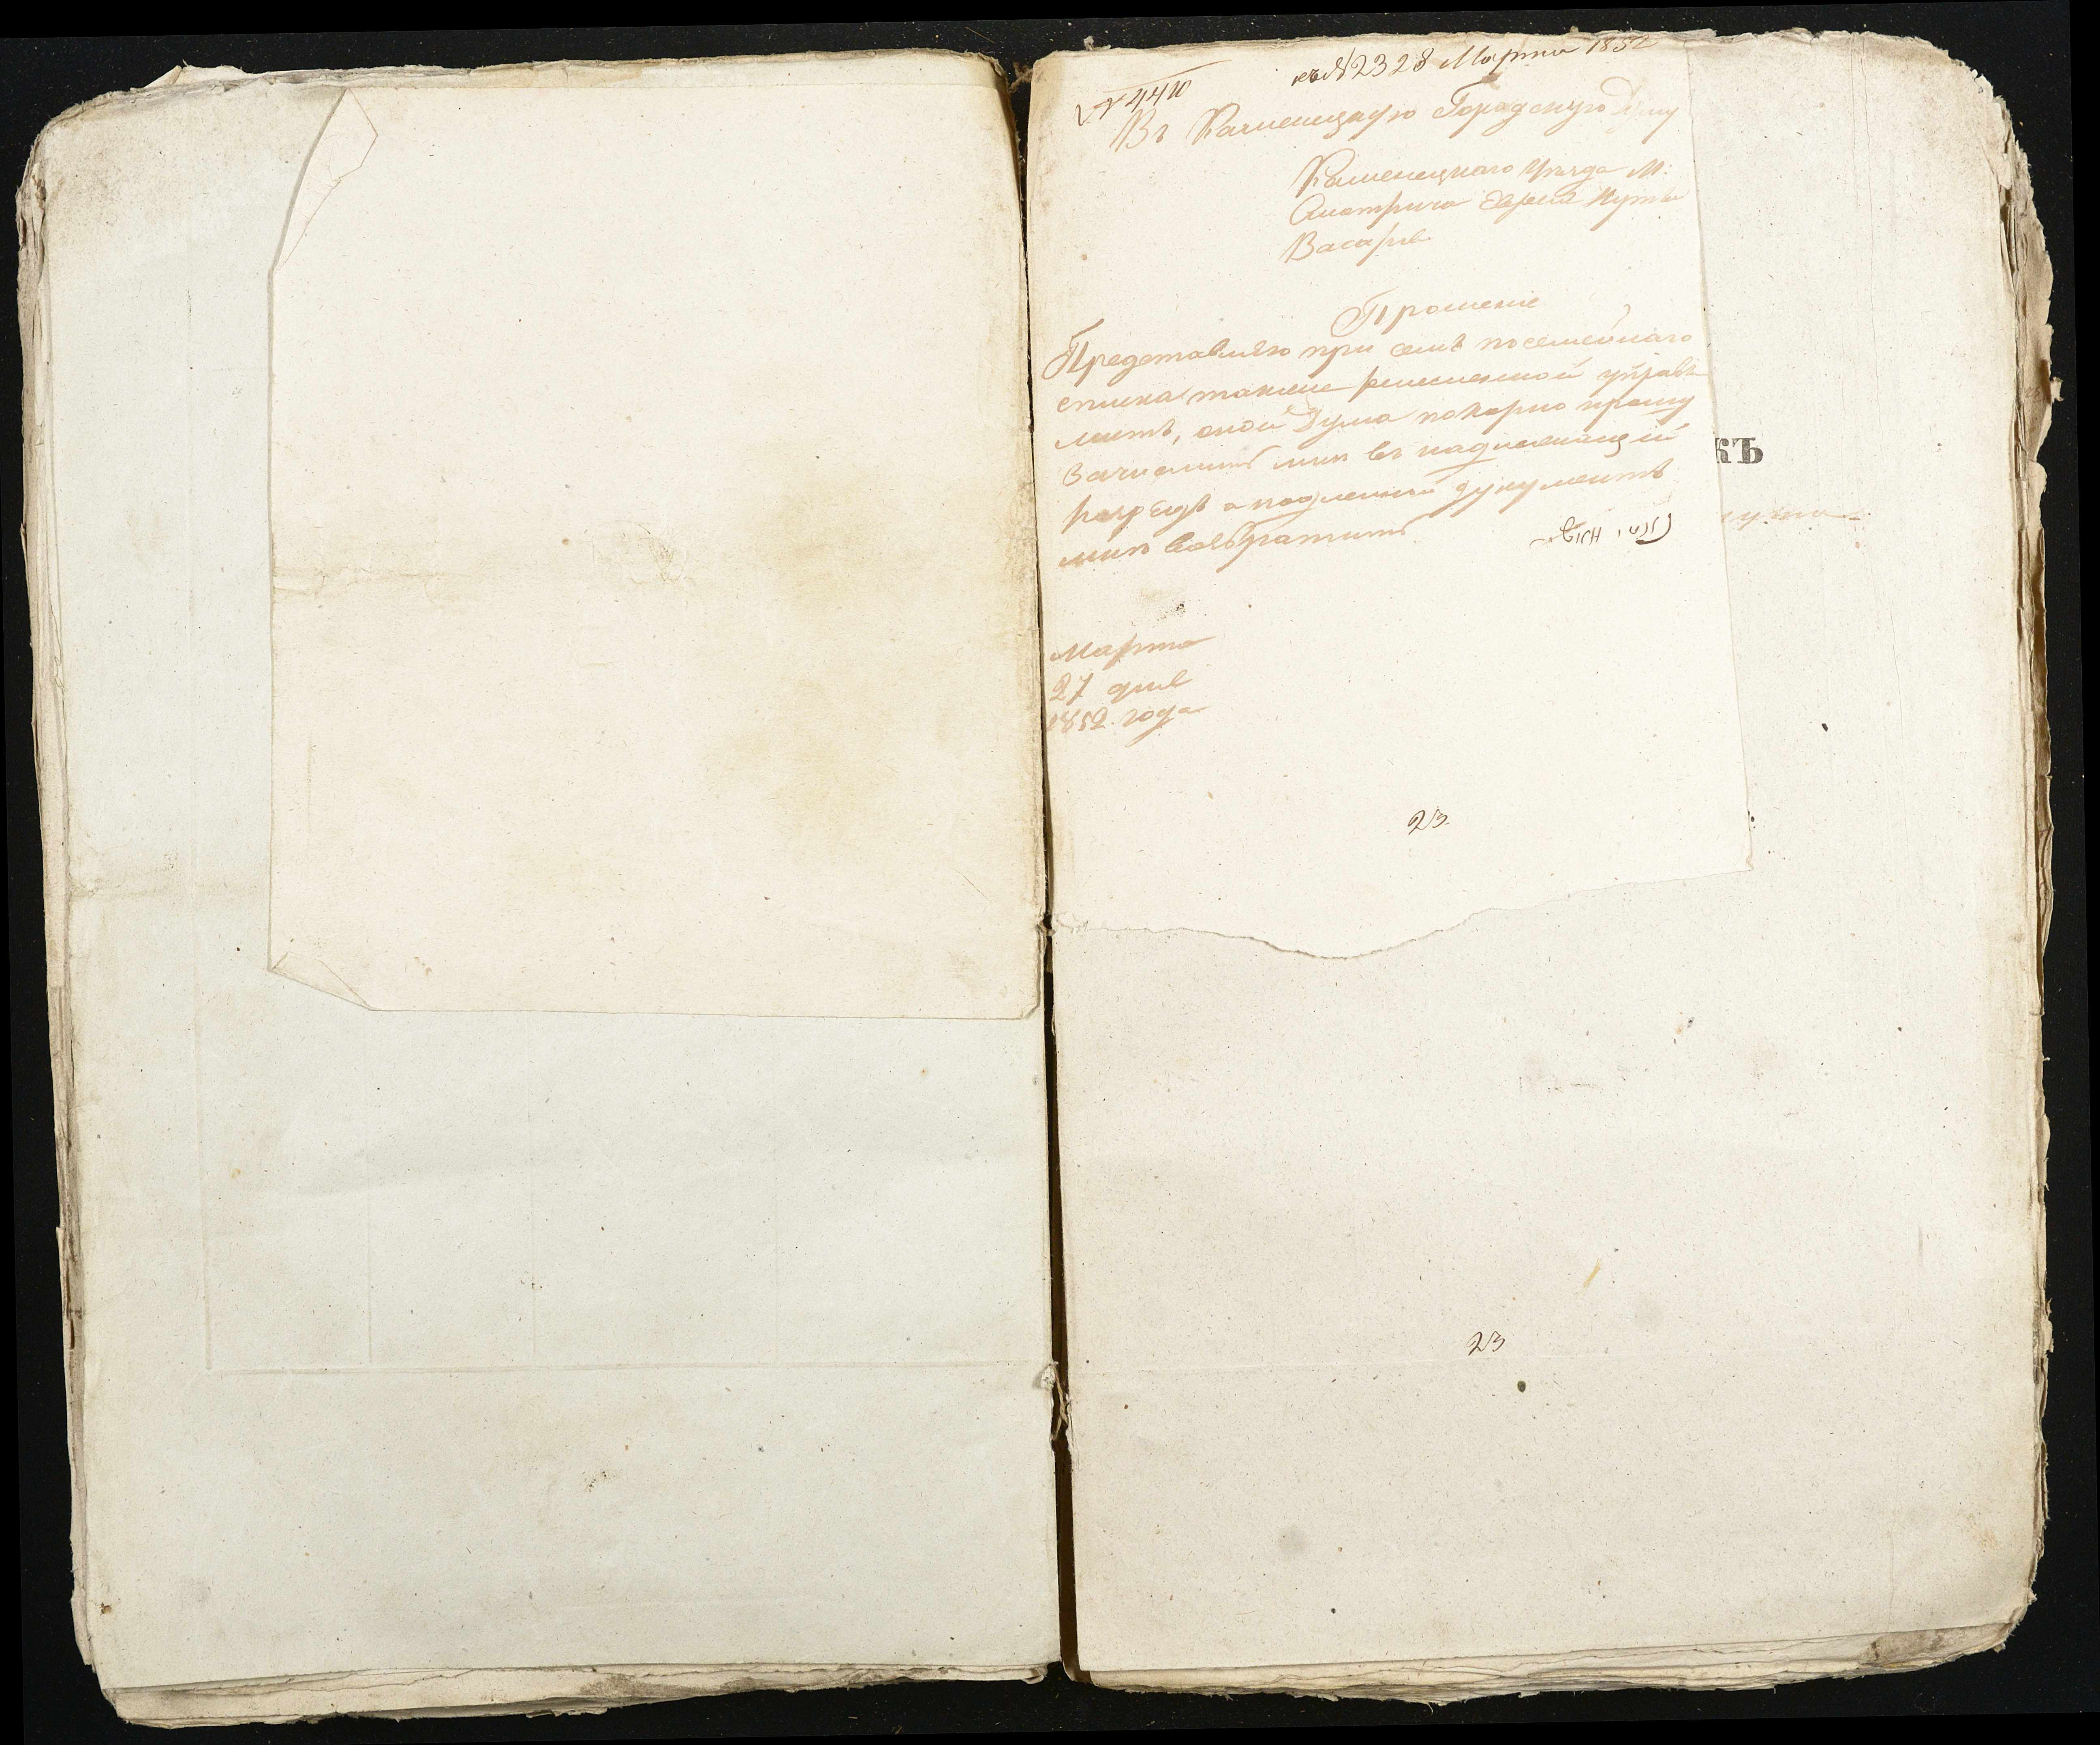 № 4410
къ № 23 28 Марта 1852
Въ Каменецкую Городскую Думу
Каменецкаго Уезда М.
Смотрича Еврея
Прошение
Представляю при семъ посемейнаго
списка также ремесленной управы
листъ, оной Дума покорно прошу
Зачислить мнп въ надлежащей
розредъ а подленный дукументъ
мнп возвратить
Марта
27 дня
1852 года
23
къ
23